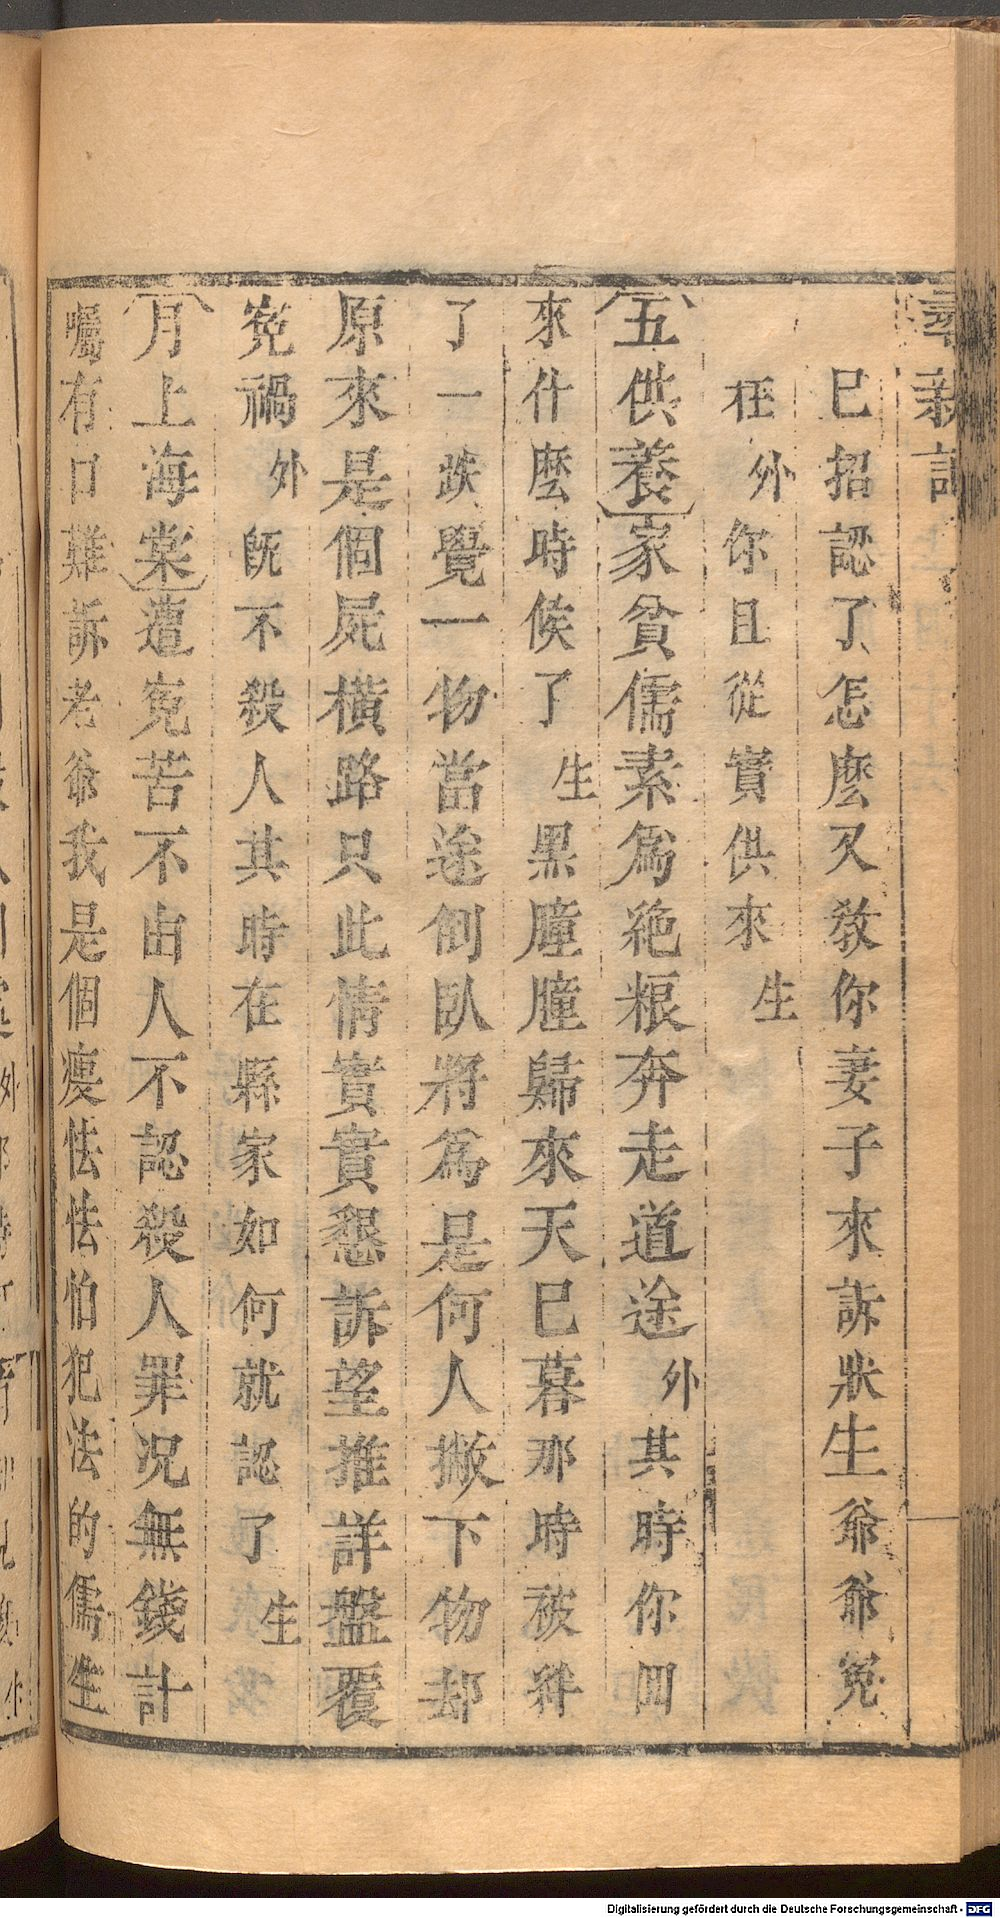 尋親記
已招認了怎麽又教你妻子來訴狀生爺爺冤
枉外你且從實供來生
五供養家貧儒素爲絶粮奔走道途外其時你囬
來什麽時候了生黑朣朣歸來天已暮那時被絆
了一跌覺一物當途倒臥將爲是何人撇下物却
原來是個屍横路只此情實實懇訴望推詳盤覆
寃禍外旣不殺人其時在縣家如何就認了生
月上海棠遭寃苦不由人不認殺人罪况無錢計
囑有口難訴老爺我是個痩怯怯怕犯法的儒生
Digitalisierung gefördert durch die Deutsche Forschungsgemeinschaft - DFG